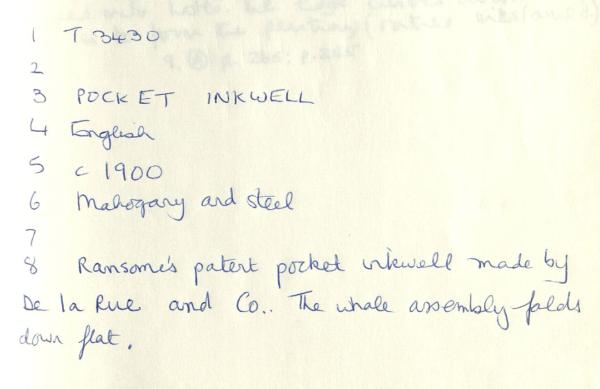 1 T 3430
2
3 POCKET INKWELL
4 English
5 c 1900
6 Mahogany and steel
7
8 Ransome's patent pocket inkwell made by
De la Rue and Co.. The whole assembly folds
down flat.